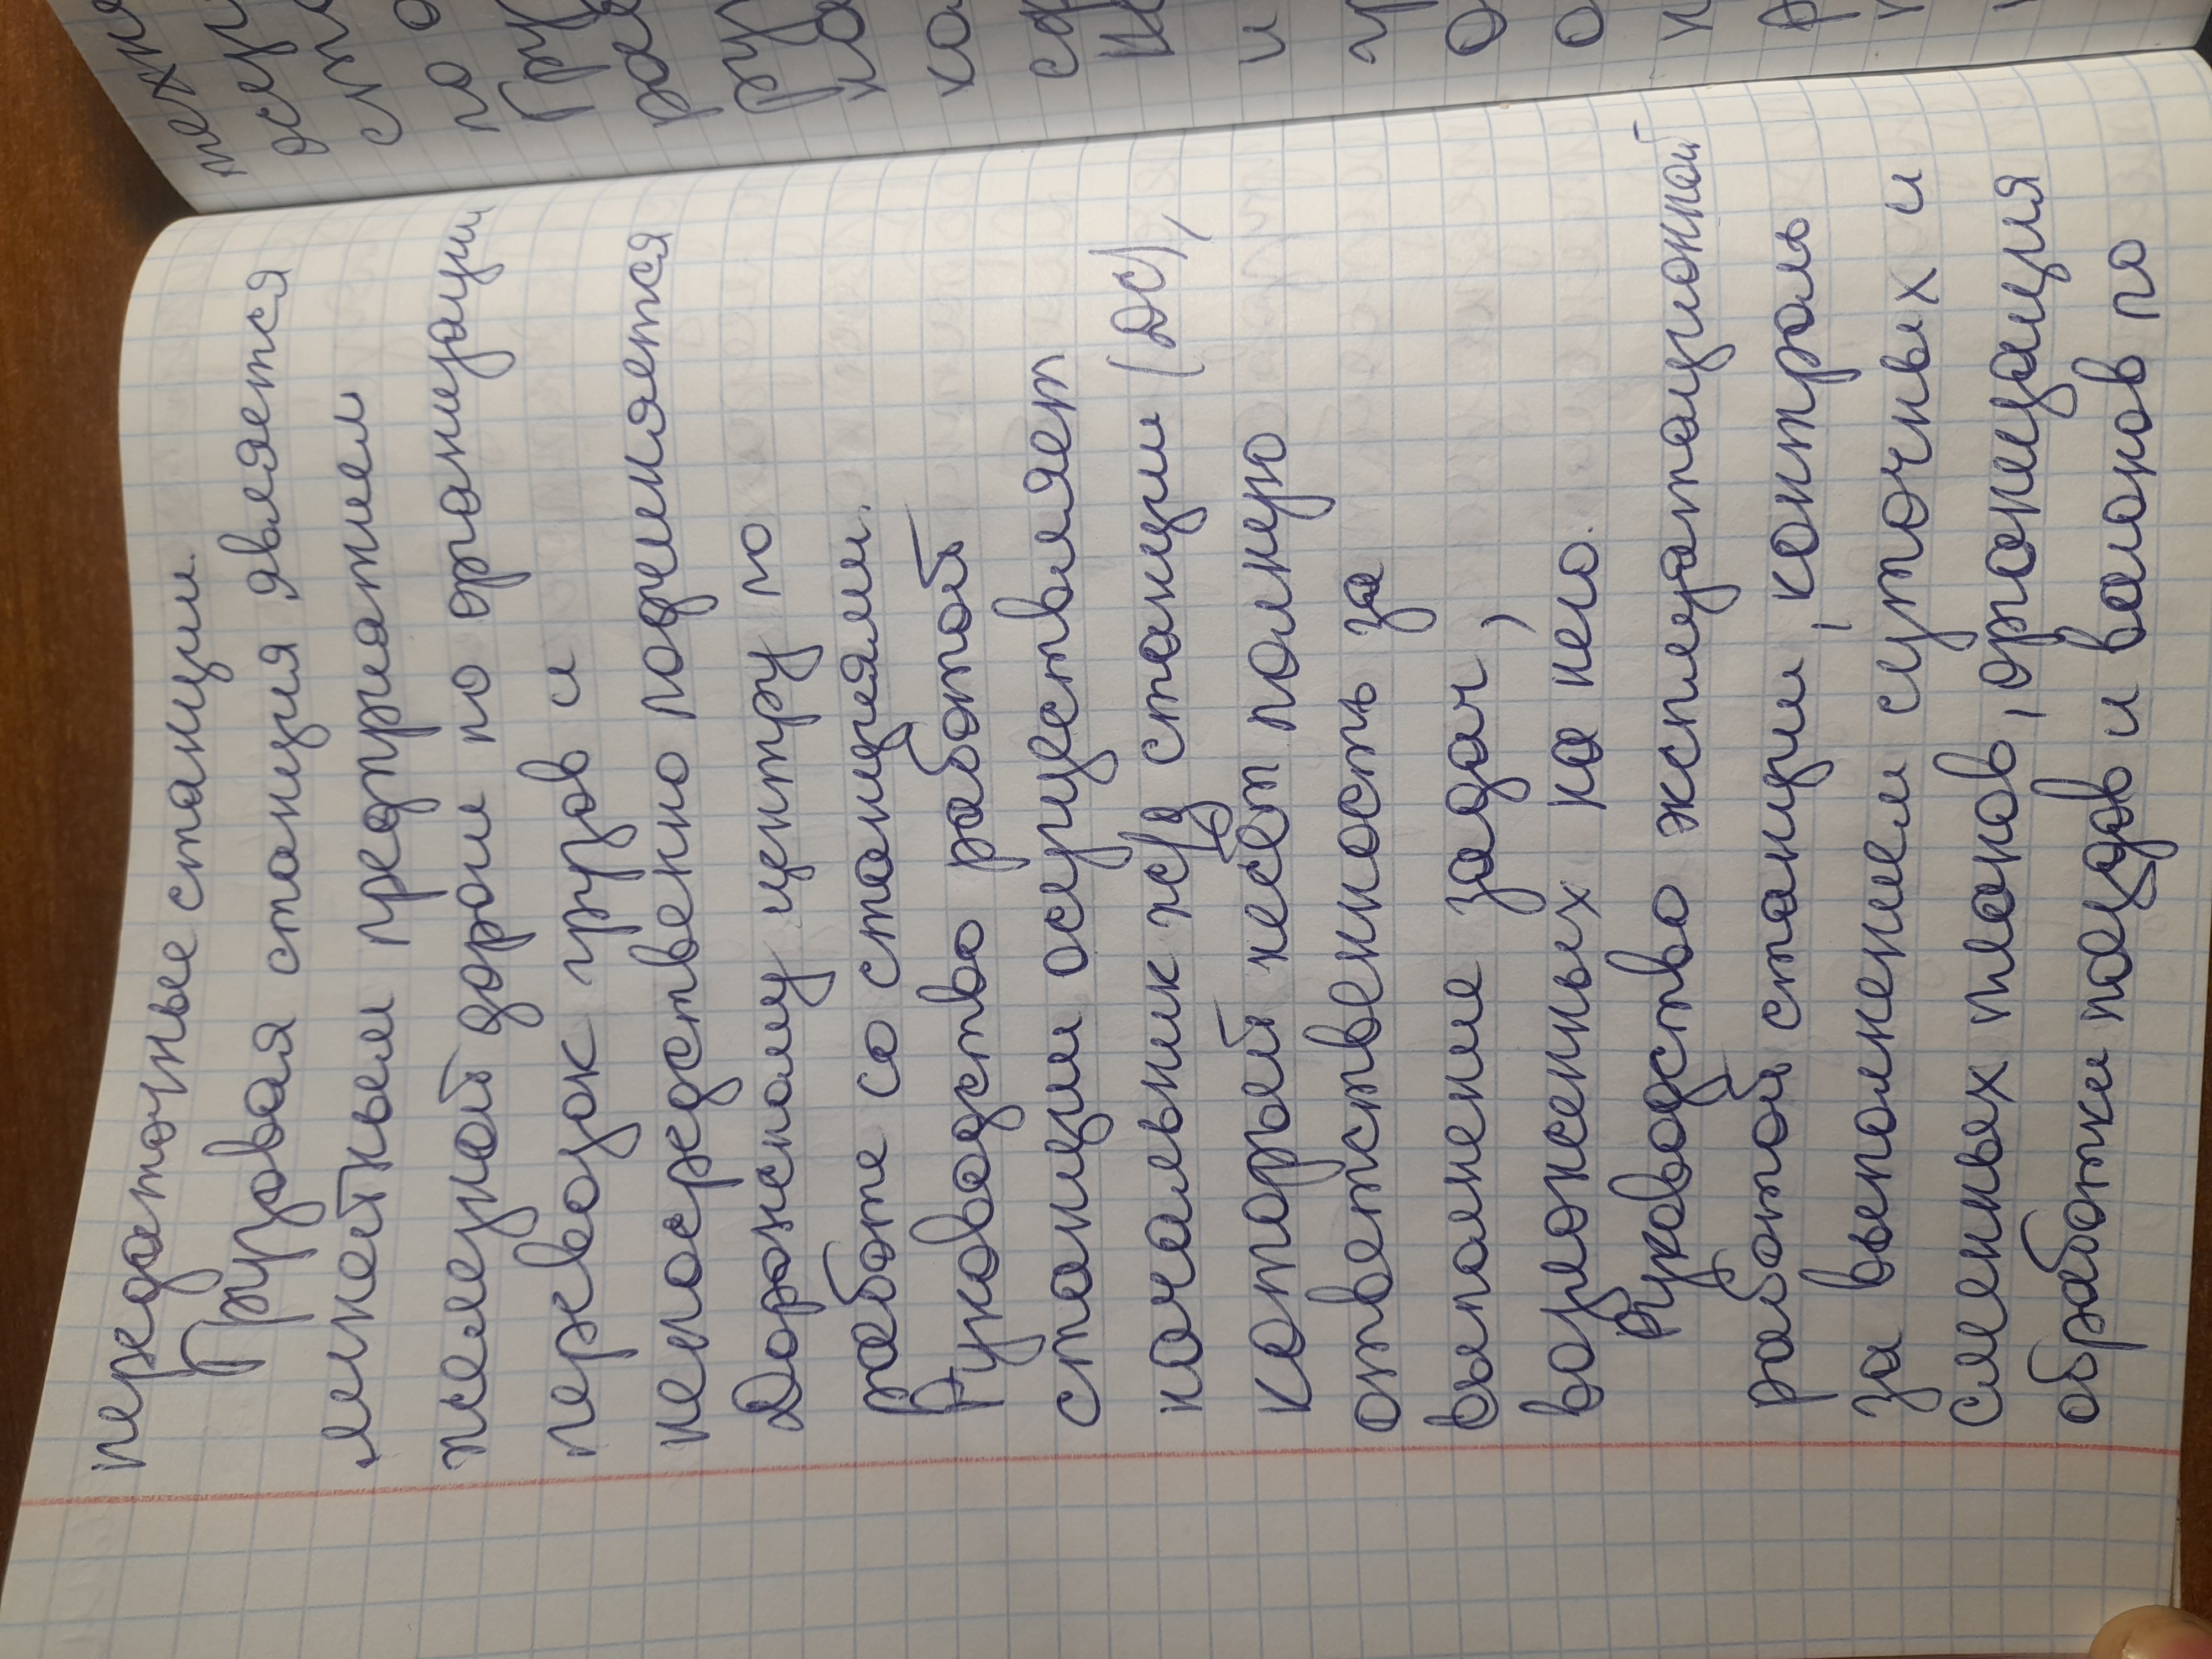 передаточные станции.
Грузовая станция является
линейным предприятием
железной дороги по организации
перевозок грузов и
непосредствено подчиняется
Дорожному центру по
работе со станциями.
Руководство работой
станции осуществляет
начальник ж/д станции (ДС),
который несет полную
ответственность за
выполнение задач,
возложенных на него.
Руководство эксплуатационной
работой станции, контроль
за выполнением суточных и
сменных планов, организация
обработки поездов и вагонов по